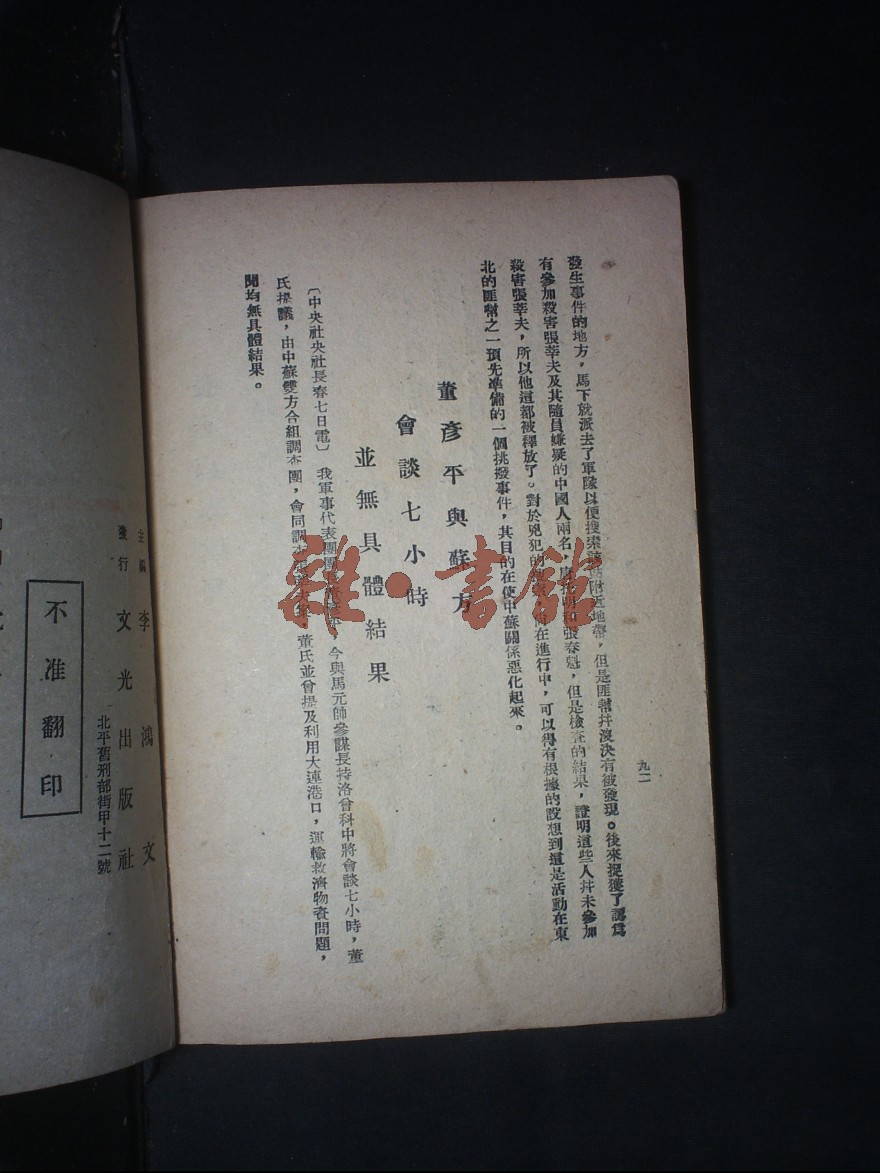 九二
發生事件的地方，馬下就派去了軍隊以便搜索 附近地帶，但是匪幫幷沒決有被發現。後來捉獲了認爲
有參加殺害張莘夫及其隨員嫌疑的中國人兩名， 張春魁，但是檢查的結果，證明這些人幷未參加
殺害張莘夫，所以他這都被釋放了。對於兇犯的 在進行中，可以得有根據的設想到這是活動在東
北的匪幫之一預先準備的一個挑撥事件，其目的在使中蘇關係惡化起來。
董彥平與蘇方
會談七小時
並無具體結果
〔中央社央社長春七日電〕我軍事代表團團 今與馬元帥參謀長持洛曾科中將會談七小時，董
氏提議，由中蘇雙方合組調查團，會同調查 ，董氏並曾提及利用大連港口，運輸救濟物資問題，
聞均無具體結果。
雜·書館
主編 李鴻文
發行 文光出版社
北平舊刑部街甲十二號
不准翻印